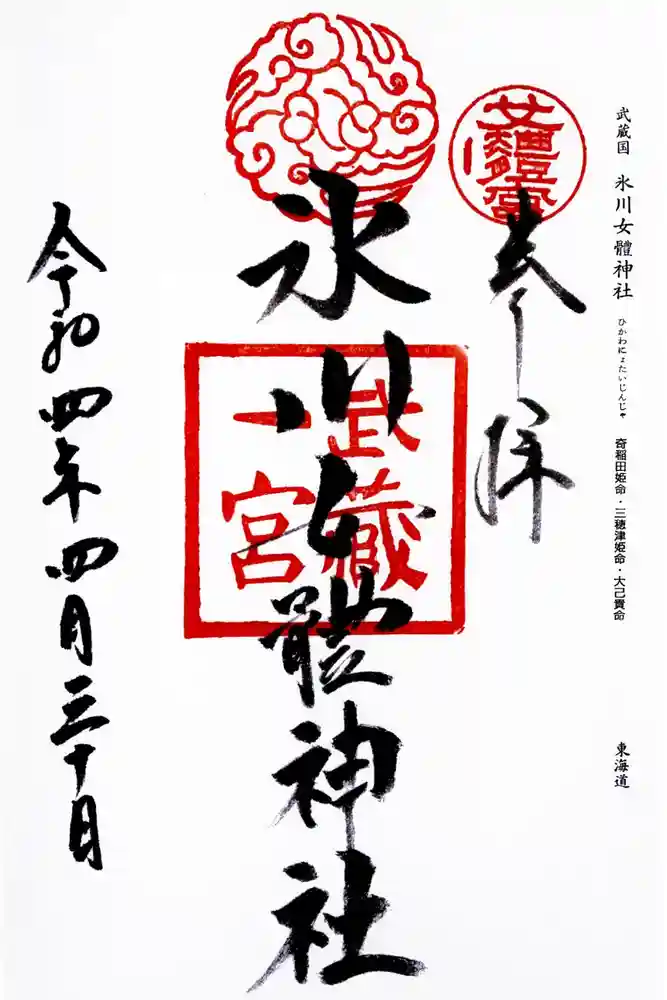 武蔵国　氷川女體神社　ひかわにょたいじんじゃ　奇稲田姫命・三穂津姫命・大己貴命　東海道
参拝
氷川女體神社
武蔵
一宮
令和四年四月三十日